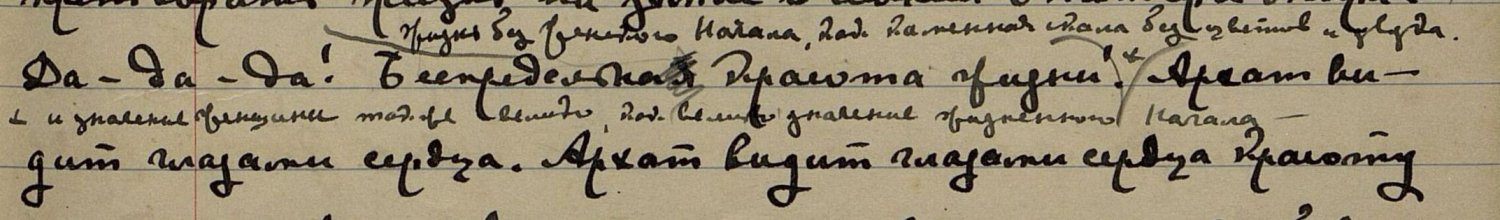 Жизнь без женского Начала, как каменная скала без цветов и гнезда.
Да – да – да! Беспредельная Красота жизни! * Архат ви–
* и значение женщины также велико, как велико значение жизненного Начала –
дит глазами сердца. Архат видит глазами сердца Красоту